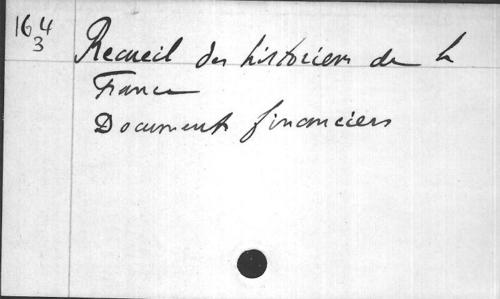 164
3
Recueil des historiens de la
France
Documents financiers